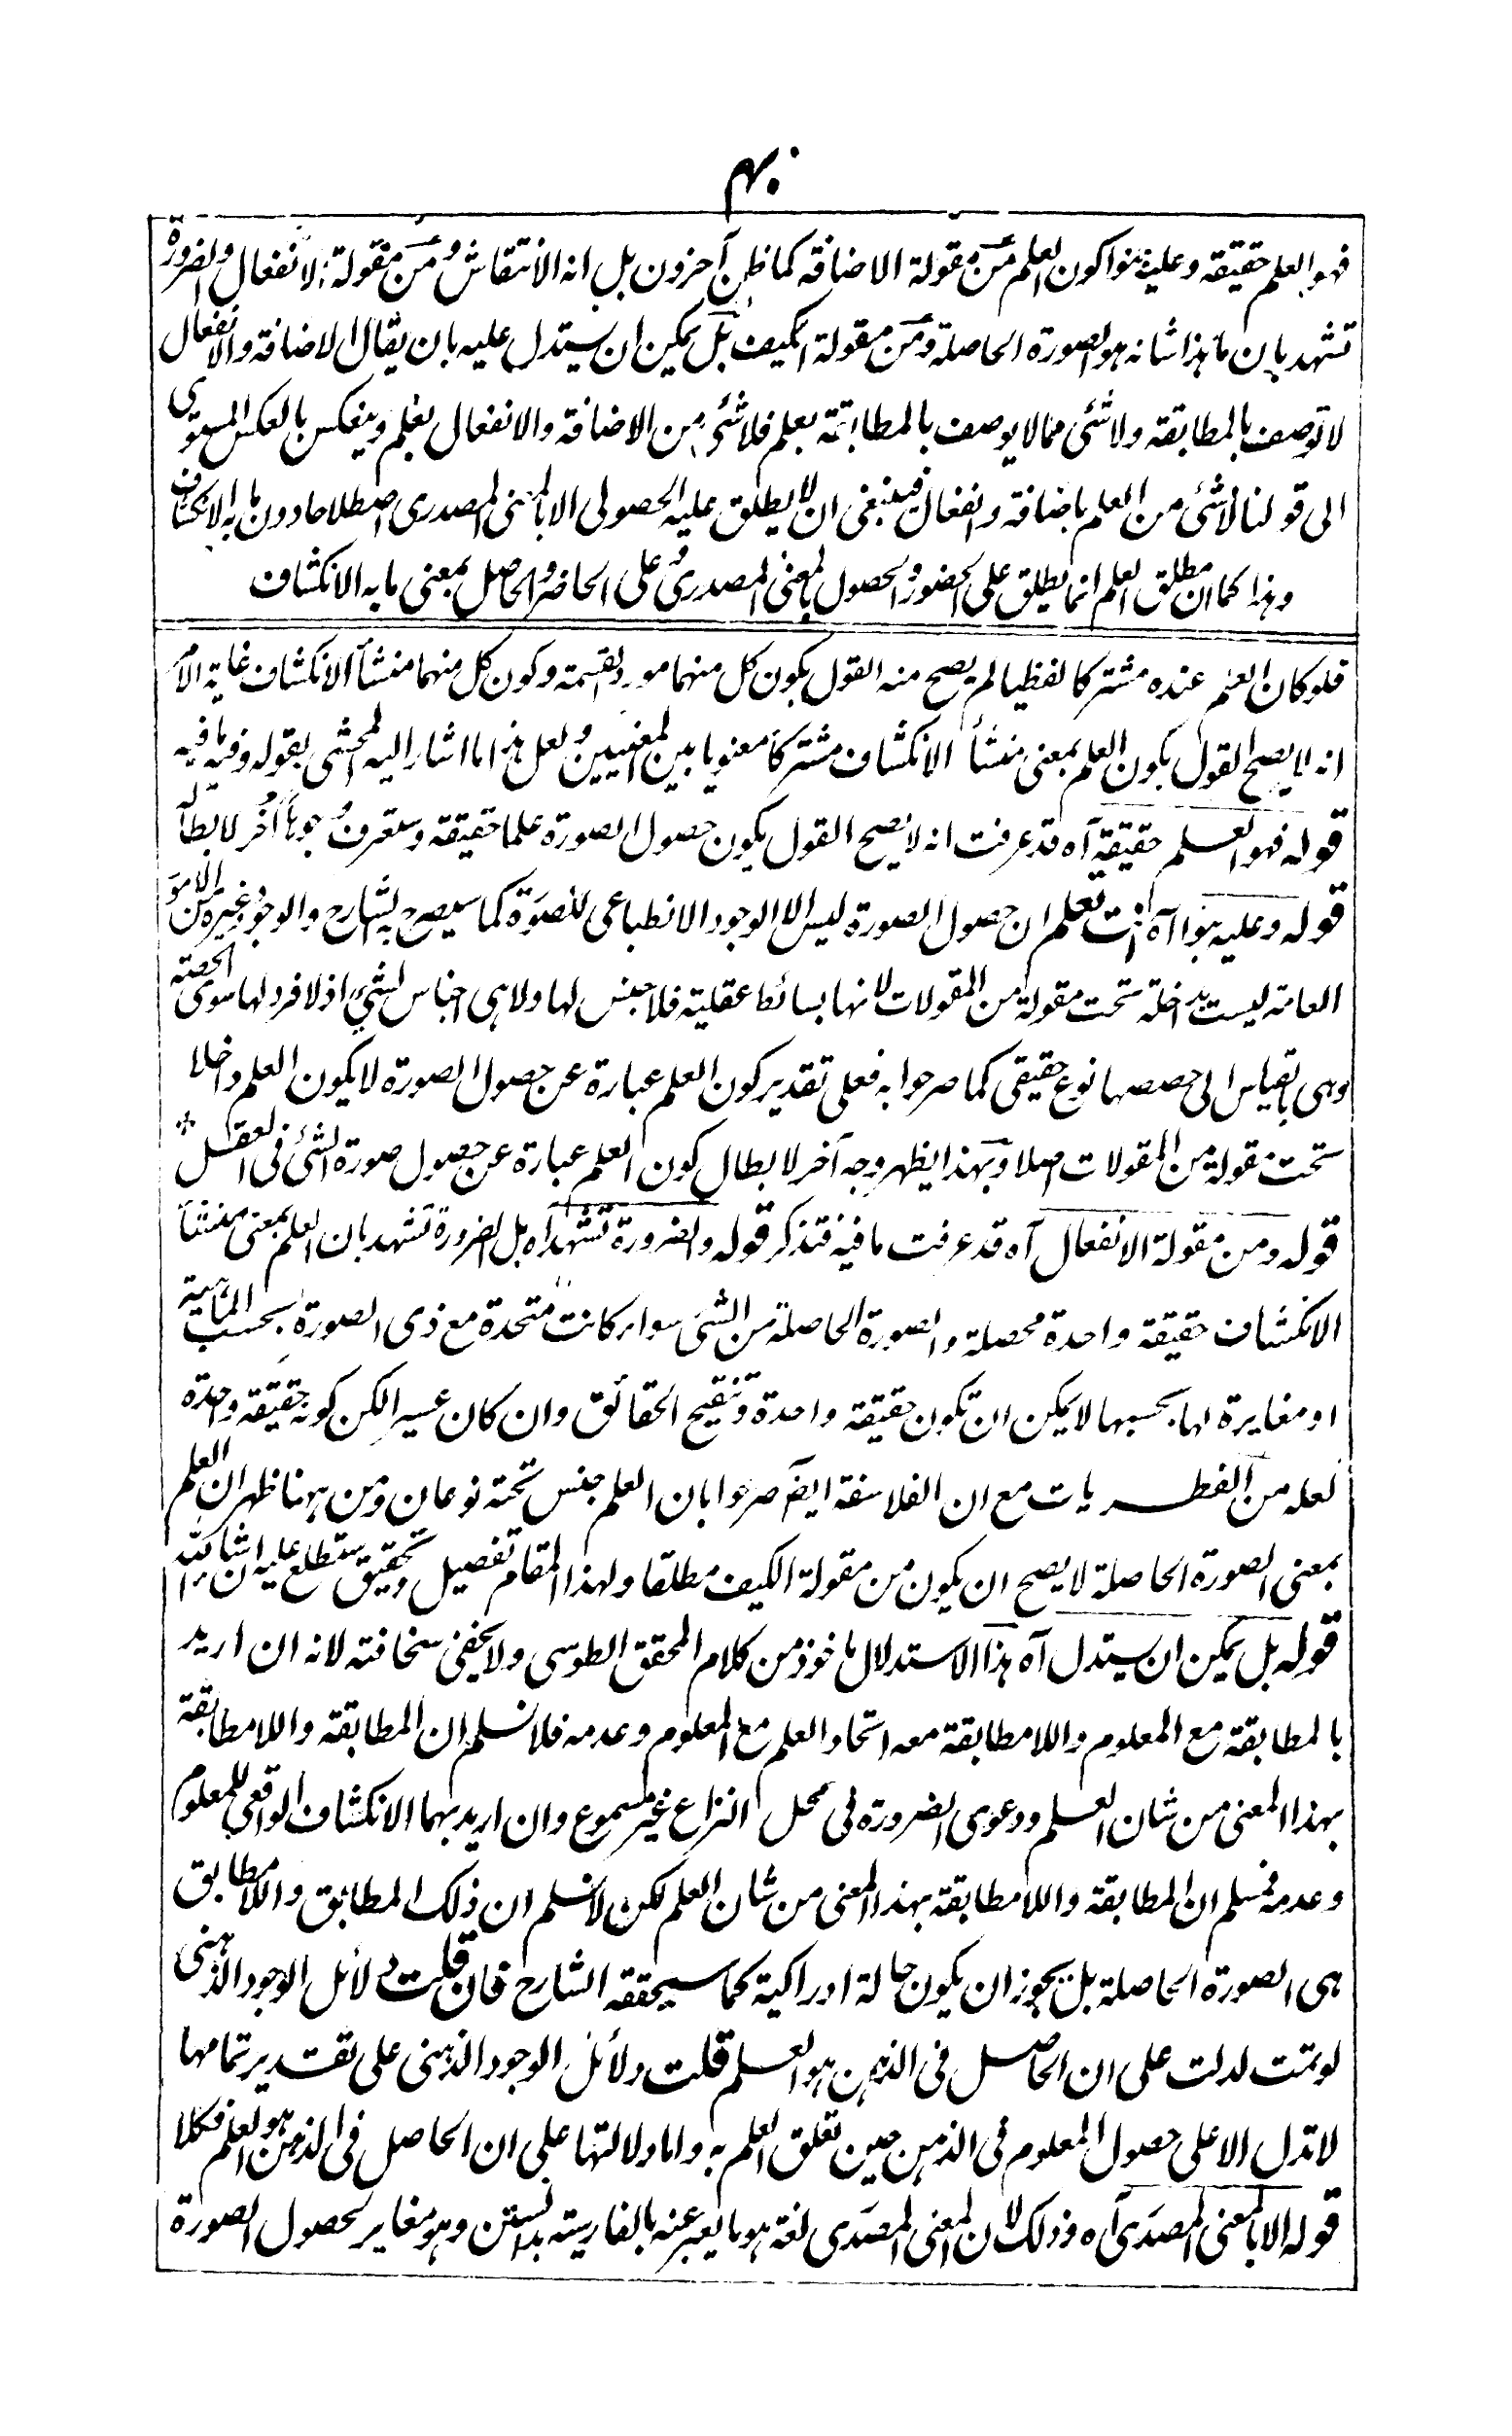 ۴۰
فهو العلم حقيقة وعليه بنوا كون العلم من مقولة الاضافة كما ظن آخرون بل انه الانتقاش ومن مقولة الانفعال والضرورة
تشهد بان ما هذا شانه هو الصورة الحاصلة ومن مقولة الكيف بل يمكن ان يستدل عليه بان يقال الاضافة والانفعال
لا توصف بالمطابقة ولا شئ مما لا يوصف بالمطابقة بعلم فلا شئ من الاضافة والانفعال بعلم وينعكس بالعكس المستوى
الى قولنا لا شئ من العلم باضافة وانفعال فينبغى ان لا يطلق عليه الحصولى الا بالمعنى المصدرى اصطلاحا دون ما به الانكشاف
وهذا كما ان مطلق العلم انما يطلق على الحضور والحصول بالمعنى المصدرى وعلى الحاضر والحاصل بمعنى ما به الانكشاف
فلو كان العلم عنده مشتركا لفظيا لم يصح منه القول بكون كل منهما مورد القسمة وكون كل منهما منشأ الانكشاف غاية الامر
انه لا يصح القول بكون العلم بمعنى منشأ الانكشاف مشتركا معنويا بين المعنيين ولعل هذا ما اشار اليه المحشى بقوله وفيه ما فيه
قوله فهو العلم حقيقة آه قد عرفت انه لا يصح القول بكون حصول الصورة علما حقيقة وستعرف وجوها أخر لابطاله
قوله وعليه بنوا آه انت تعلم ان حصول الصورة ليس الا الوجود الانطباعى للصورة كما سيصرح به الشارح والوجود وغيره من الامور
العامة ليست بداخلة تحت مقولة من المقولات لانها بسائط عقلية فلا جنس لها ولا هى اجناس لشئ اذ لا فرد لها سوى الحصة
وهى بالقياس الى حصصها نوع حقيقى كما صرحوا به فعلى تقدير كون العلم عبارة عن حصول الصورة لا يكون العلم داخلا
تحت مقولة من المقولات اصلا وبهذا يظهر وجه آخر لابطال كون العلم عبارة عن حصول صورة الشئ فى العقل *
قوله ومن مقولة الانفعال آه قد عرفت ما فيه فتذكر قوله والضرورة تشهد آه بل الضرورة تشهد بان العلم بمعنى منشأ
الانكشاف حقيقة واحدة محصلة والصورة الحاصلة من الشئ سواء كانت متحدة مع ذى الصورة بحسب الماهية
او مغايرة لها بحسبها لا يمكن ان تكون حقيقة واحدة وتنقيح الحقائق وان كان عسيرا لكن كونه حقيقة واحدة
لعله من الفطريات مع ان الفلاسفة ايضا صرحوا بان العلم جنس تحته نوعان ومن ههنا ظهر ان العلم
بمعنى الصورة الحاصلة لا يصح ان يكون من مقولة الكيف مطلقا ولهذا المقام تفصيل وتحقيق ستطلع عليه ان شاء الله
قوله بل يمكن ان يستدل آه هذا الاستدلال ماخوذ من كلام المحقق الطوسى ولا يخفى سخافته لانه ان اريد
بالمطابقة مع المعلوم واللامطابقة معه اتحاد العلم مع المعلوم وعدمه فلا نسلم ان المطابقة واللامطابقة
بهذا المعنى من شان العلم ودعوى الضرورة فى محل النزاع غير مسموع وان اريد بهما الانكشاف الواقعى للمعلوم
وعدمه فمسلم ان المطابقة واللامطابقة بهذا المعنى من شان العلم لكن لا نسلم ان ذلك المطابق واللامطابق
هى الصورة الحاصلة بل يجوز ان يكون حالة ادراكية كما سيحققه الشارح فان قلت دلائل الوجود الذهنى
لو تمت لدلت على ان الحاصل فى الذهن هو العلم قلت دلائل الوجود الذهنى على تقدير تمامها
لا تدل الا على حصول المعلوم فى الذهن حين تعلق العلم به واما دلالتها على ان الحاصل فى الذهن هو العلم فكلا
قوله الا بالمعنى المصدرى آه وذلك لان المعنى المصدرى لغة هو ما يعبر عنه بالفارسية بدانستن وهو مغاير لحصول الصورة